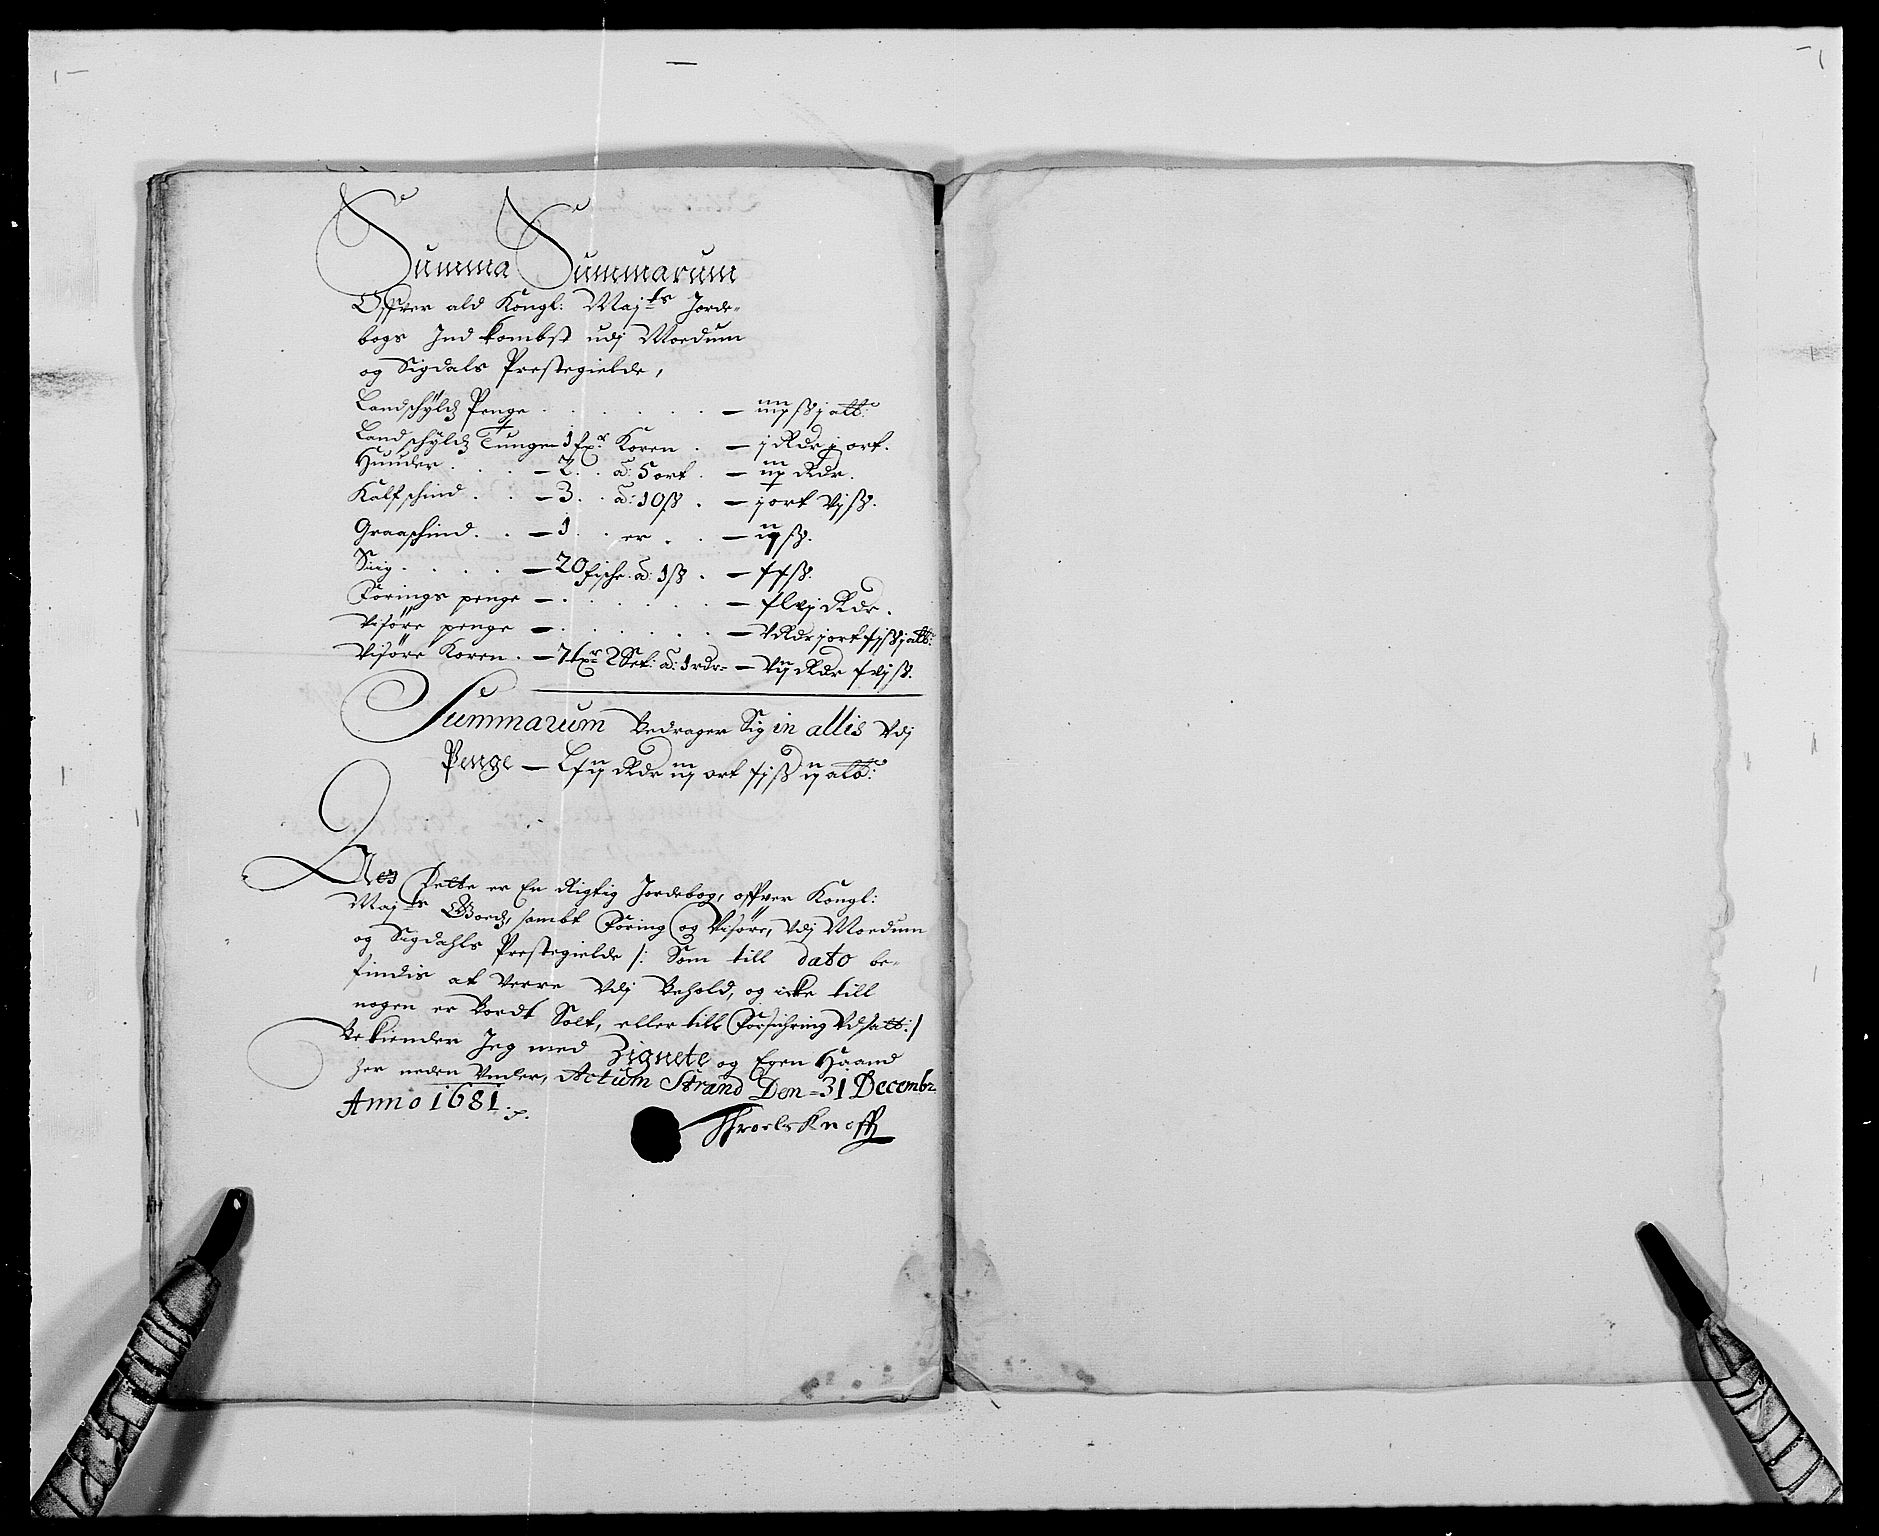 Summa Summarum
Offver ald Kongl: Maj:ts Jorde-
bogs Ind kombst udj Moedum
og Sigdals Prestegielde,
Landschÿld Penge . . . . . . — iiij ß j alb:
Landschÿld Tunge 1 fx:r Koren . — j Rdr j ort.
Huuder . . . — 2 . . ad: 5 ort . — iij Rdr.
Kalfschind . . — 3 . . ad: 10 ß . — j ort vj ß.
Graaschind . . — 1 . . er . . — ij ß.
Siig . . . . — 20 fische. ad: 1 ß . — xx ß.
Forings penge — . . . . . . — xlvj Rdr.
Visöre penge — . . . . . . — v Rdr j ort xj ß j alb:
Visöre Koren . — 7 fx:r 2 Set: ad: 1 rdr — vij Rdr xvj ß.
Summarum Bedrager Sig in allis Vdj
Penge — Lxij Rdr iij ort xj ß ij alb:
At Dette er En Rigtig Jordebog, offver Kongl:
Maj:ts Goeds, sambt Föring og Visöre, Vdj Moedum
og Sigdahls Prestegielde /: Som till dato be-
findis at Verre Vdj Behold, og icke till
nogen er Bordt Solt, eller till Forsichring Vdsatt :/
Bekiender Jeg med Zignete og Egen Haand
her neden Vnder, Actum Strand Den = 31 Decembr
Anno 1681
Throels Knoff